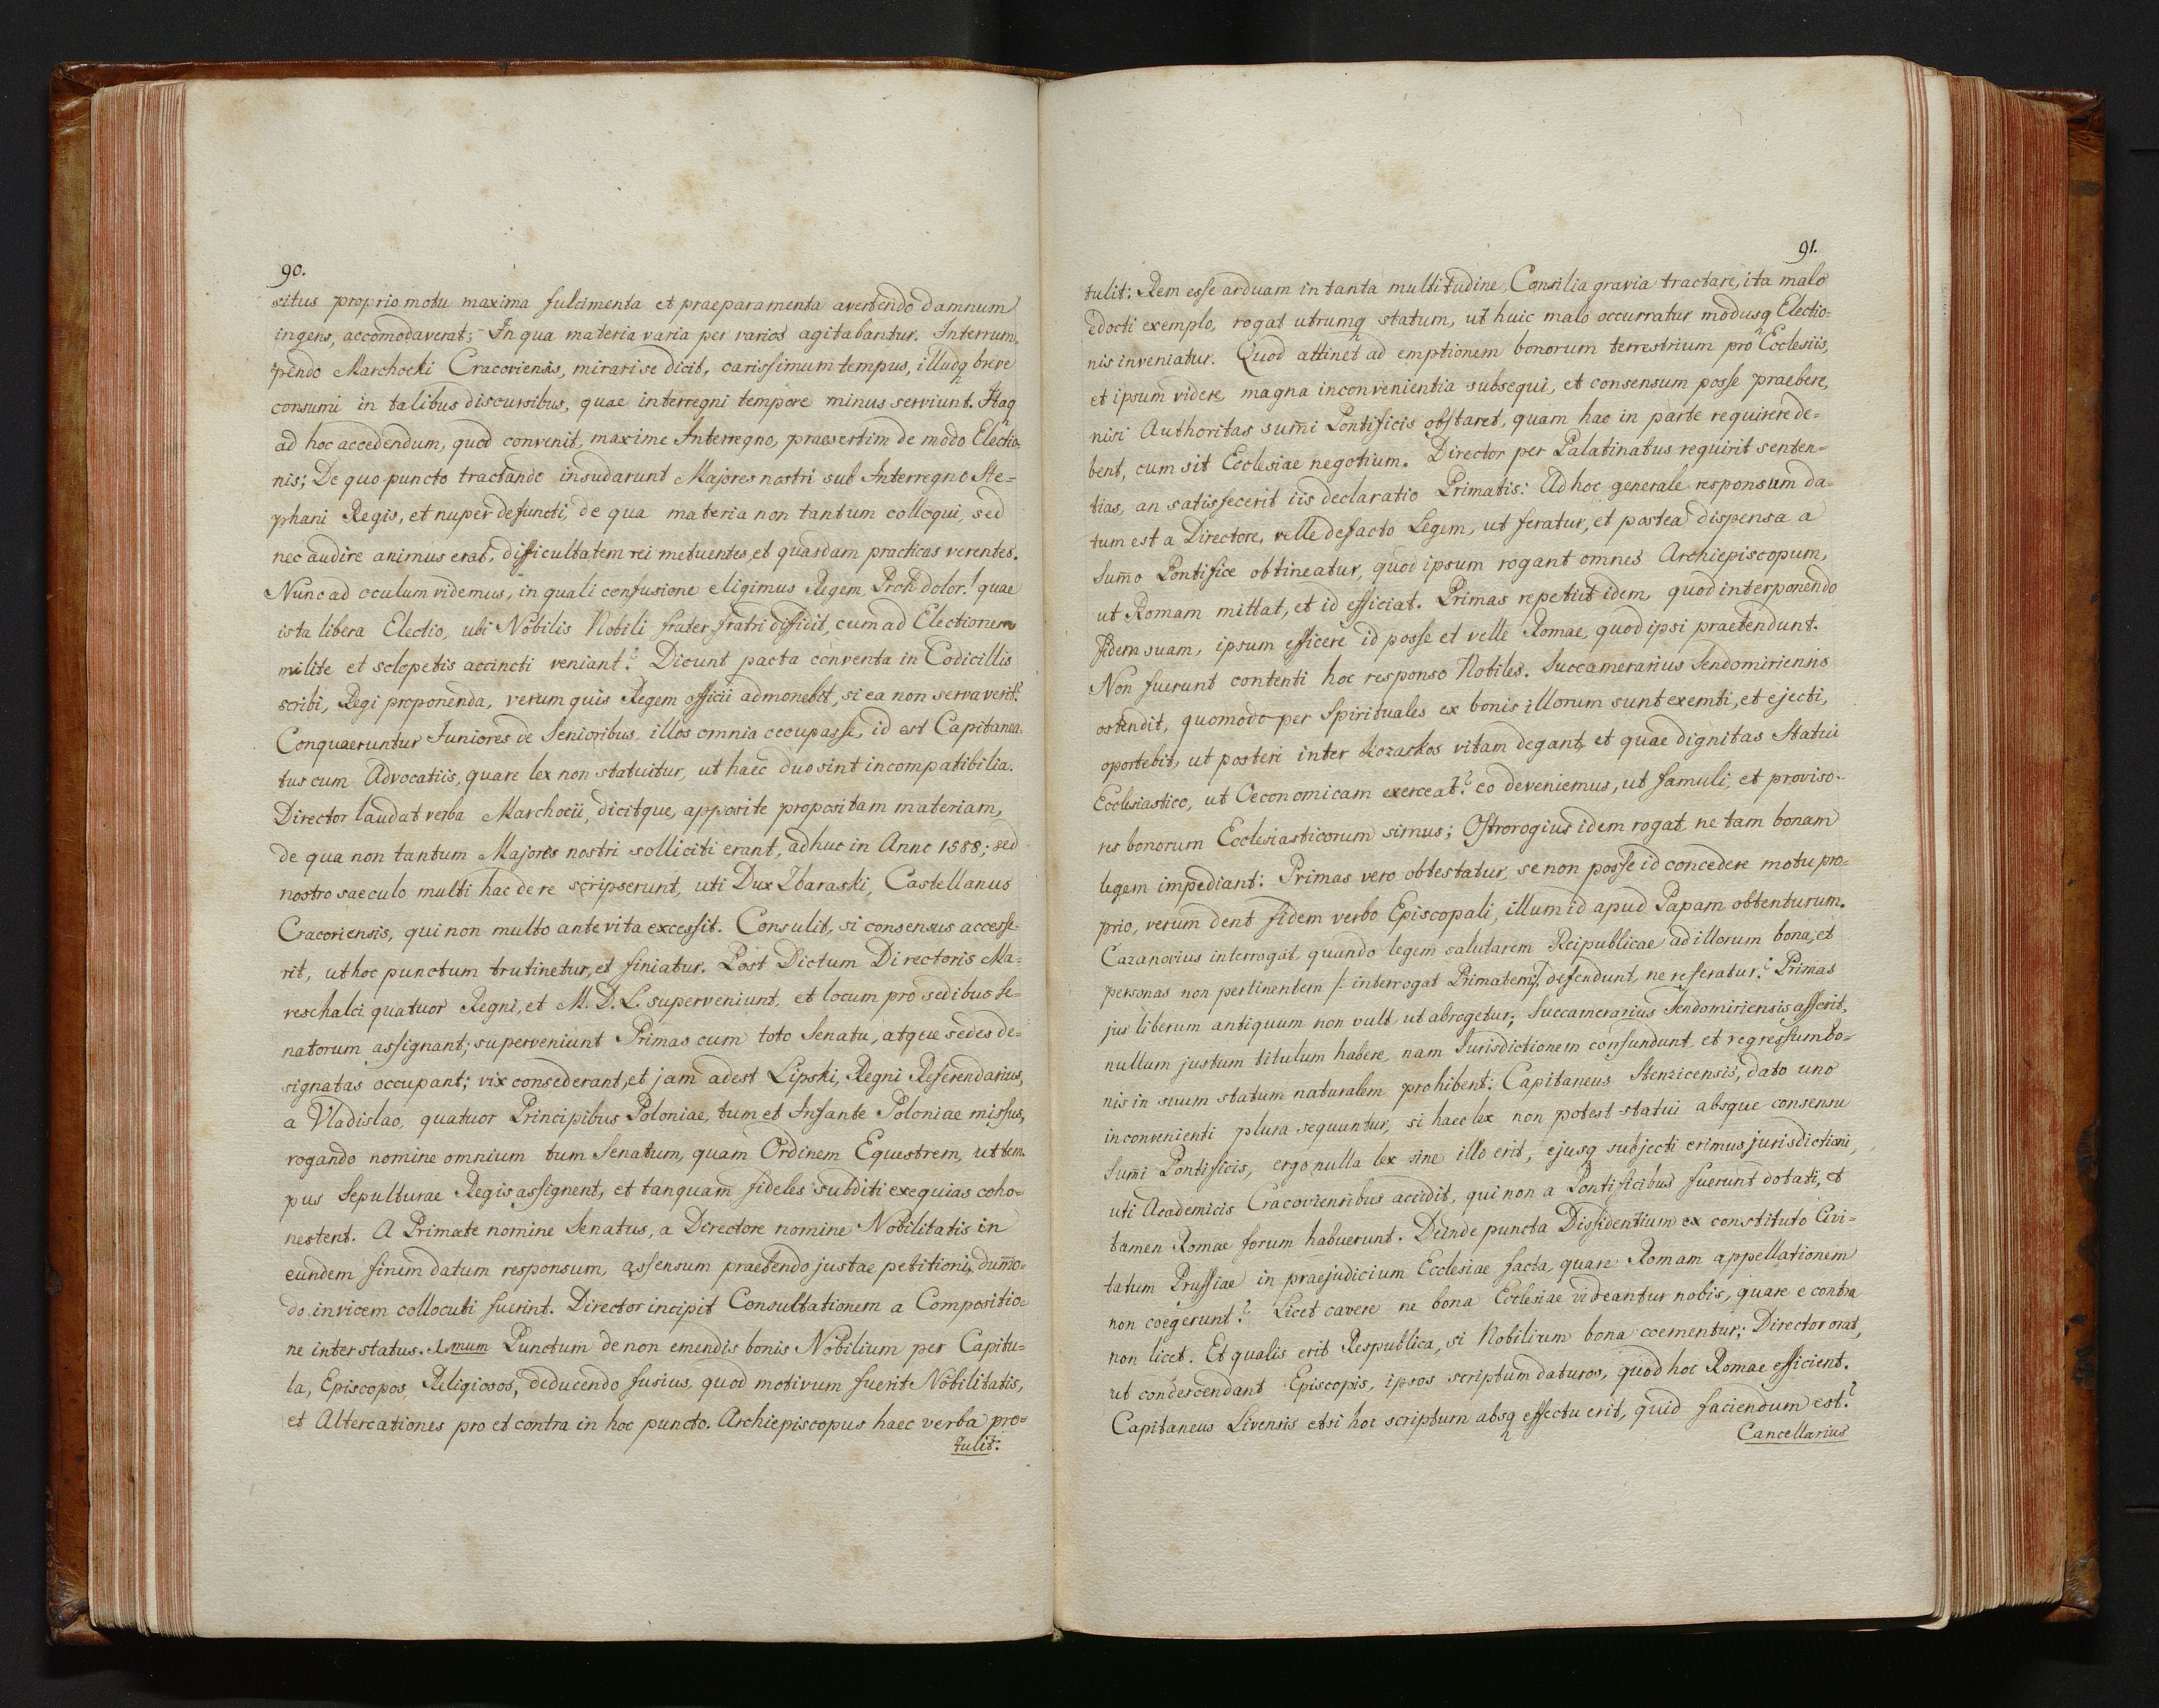 90.
citus proprio motu maxima fulcimenta et praeparamenta avertendo damnum
ingens, accomodaverat; In qua materia varia per varios agitabantur. Interrum-
pendo Marchocki Cracoviensis, mirari se dicit, carissimum tempus, illudq breve
consumi in talibus discursibus, quae interregni tempore minus serviunt. Itaq
ad hoc accedendum, quod convenit, maxime Interregno, praesertim de modo Electio-
nis; De quo puncto tractando insudarunt Majores nostri sub Interregno Ste-
phani Regis, et nuper defuncti, de qua materia non tantum colloqui, sed
nec audire animus erat, difficultatem rei metuentes, et quasdam practicas verentes.
Nunc ad oculum videmus, in quali confusione eligimus Regem, Proh dolor! quae
ista libera Electio, ubi Nobilis Nobili frater fratri difficit, cum ad Electionem
milite et sclopetis accincti veniant? Dicunt pacta conventa in Codicillis
scribi, Regi proponenda, verum quis Regem officii admonebit, si ea non servaverit?
Conquaeruntur Juniores de Senioribus, illos omnia occupasse, id est Capitanea-
tus cum Advocatiis, quare lex non statuitur, ut haec duo sint incompatibilia.
Director laudat verba Marchocii, dicitque, apposite propositam materiam,
de qua non tantum Majores nostri solliciti erant, adhuc in Anno 1588; sed
nostro saeculo multi hac de re scripserunt, uti Dux Zbaraski, Castellanus
Cracoviensis, qui non multo ante vita excessit. Consulit, si consensus accesse-
rit, ut hoc punctum trutinetur, et finiatur. Post Dictum Directoris Ma-
reschalci quatuor Regni, et M. D. L. superveniunt, et locum pro sedibus Se-
natorum assignant; superveniunt Primas cum toto Senatu, atque sedes de-
signatas occupant; vix consederant, et jam adest Lipski, Regni Referendarius,
a Vladislao, quatuor Principibus Poloniae, tum et Infante Poloniae missus,
rogando nomine omnium tum Senatum, quam Ordinem Equestrem, ut tem-
pus Sepulturae Regis assignent, et tanquam fideles subditi exequias coho-
nestent. A Primate nomine Senatus, a Directore nomine Nobilitatis in
eundem finem datum responsum, assensum praetendo justae petitioni, dum̄o-
do invicem collocuti fuerint. Director incipit Consultationem a Compositio-
ne inter status. 1mum Punctum de non emendis bonis Nobilium per Capitu-
la, Episcopos, Religiosos, deducendo fusius, quod motivum fuerit Nobilitatis,
et Altercationes pro et contra in hoc puncto. Archiepiscopus haec verba pro-
tulit:
91.
tulit: Rem esse arduam in tanta multitudine, Consilia gravia tractare, ita malo
edocti exemplo, rogat utrumq statum, ut huic malo occurratur modusq Electio-
nis inveniatur. Quod attinet ad emptionem bonorum terrestrium pro Ecclesiis,
et ipsum videre, magna inconvenientia subsequi, et consensum posse praebere,
nisi Authoritas sum̄i Pontificis obstaret, quam hac in parte requirere de-
bent, cum sit Ecclesiae negotium. Director per Palatinatus requirit senten-
tias, an satisfecerit iis declaratio Primatis: Ad hoc generale responsum da-
tum est a Directore, velle defacto Legem, ut feratur, et postea dispensa a
Sum̄o Pontifice obtineatur, quod ipsum rogant omnes Archiepiscopum,
ut Romam mittat, et id efficiat. Primas repetiit idem, quod interponendo
fidem suam, ipsum efficere id posse et velle Romae, quod ipsi praetendunt.
Non fuerunt contenti hoc responso Nobiles. Succamerarius Sendomiriensis
ostendit, quomodo per Spirituales ex bonis illorum sunt exemti, et ejecti,
oportebit, ut posteri inter Kozackos vitam degant, et quae dignitas Statui
Ecclesiastico, ut Oeconomicam exerceat? eo deveniemus, ut famuli, et proviso-
res bonorum Ecclesiasticorum simus; Ostrorogius idem rogat, ne tam bonam
legem impediant: Primas vero obtestatur, se non posse id concedere motu pro-
prio, verum dent fidem verbo Episcopali, illum id apud Papam obtenturum.
Cazanovius interrogat, quando legem salutarem Reipublicae ad illorum bona, et
personas non pertinentem /: interrogat Primatem :/ defendunt, ne referatur: Primas
jus liberum antiquum non vult ut abrogetur; Succamerarius Sendomiriensis asserit,
nullum justum titulum habere, nam Jurisdictionem confundunt, et regressum bo-
nis in suum statum naturalem prohibent: Capitaneus Stenzicensis, dato uno
inconvenienti plura sequuntur, si haec lex non potest statui absque consensu
Sum̄i Pontificis, ergo nulla lex sine illo erit, ejusq subjecti erimus jurisdictioni,
uti Academicis Cracoviensibus accidit, qui non a Pontificibus fuerunt dotati, et
tamen Romae forum habuerunt. Deinde puncta Dissidentium ex constituto Civi-
tatum Prussiae in praejudicium Ecclesiae facta, quare Romam appellationem
non coegerunt? Licet cavere ne bona Ecclesiae videantur nobis, quare e contra
non licet. Et qualis erit Respublica, si Nobilium bona coementur; Director orat,
ut condescendant Episcopis, ipsos scriptum daturos, quod hoc Romae efficient.
Capitaneus Livensis etsi hoc scriptum absq effectu erit, quid faciendum est?
Cancellarius